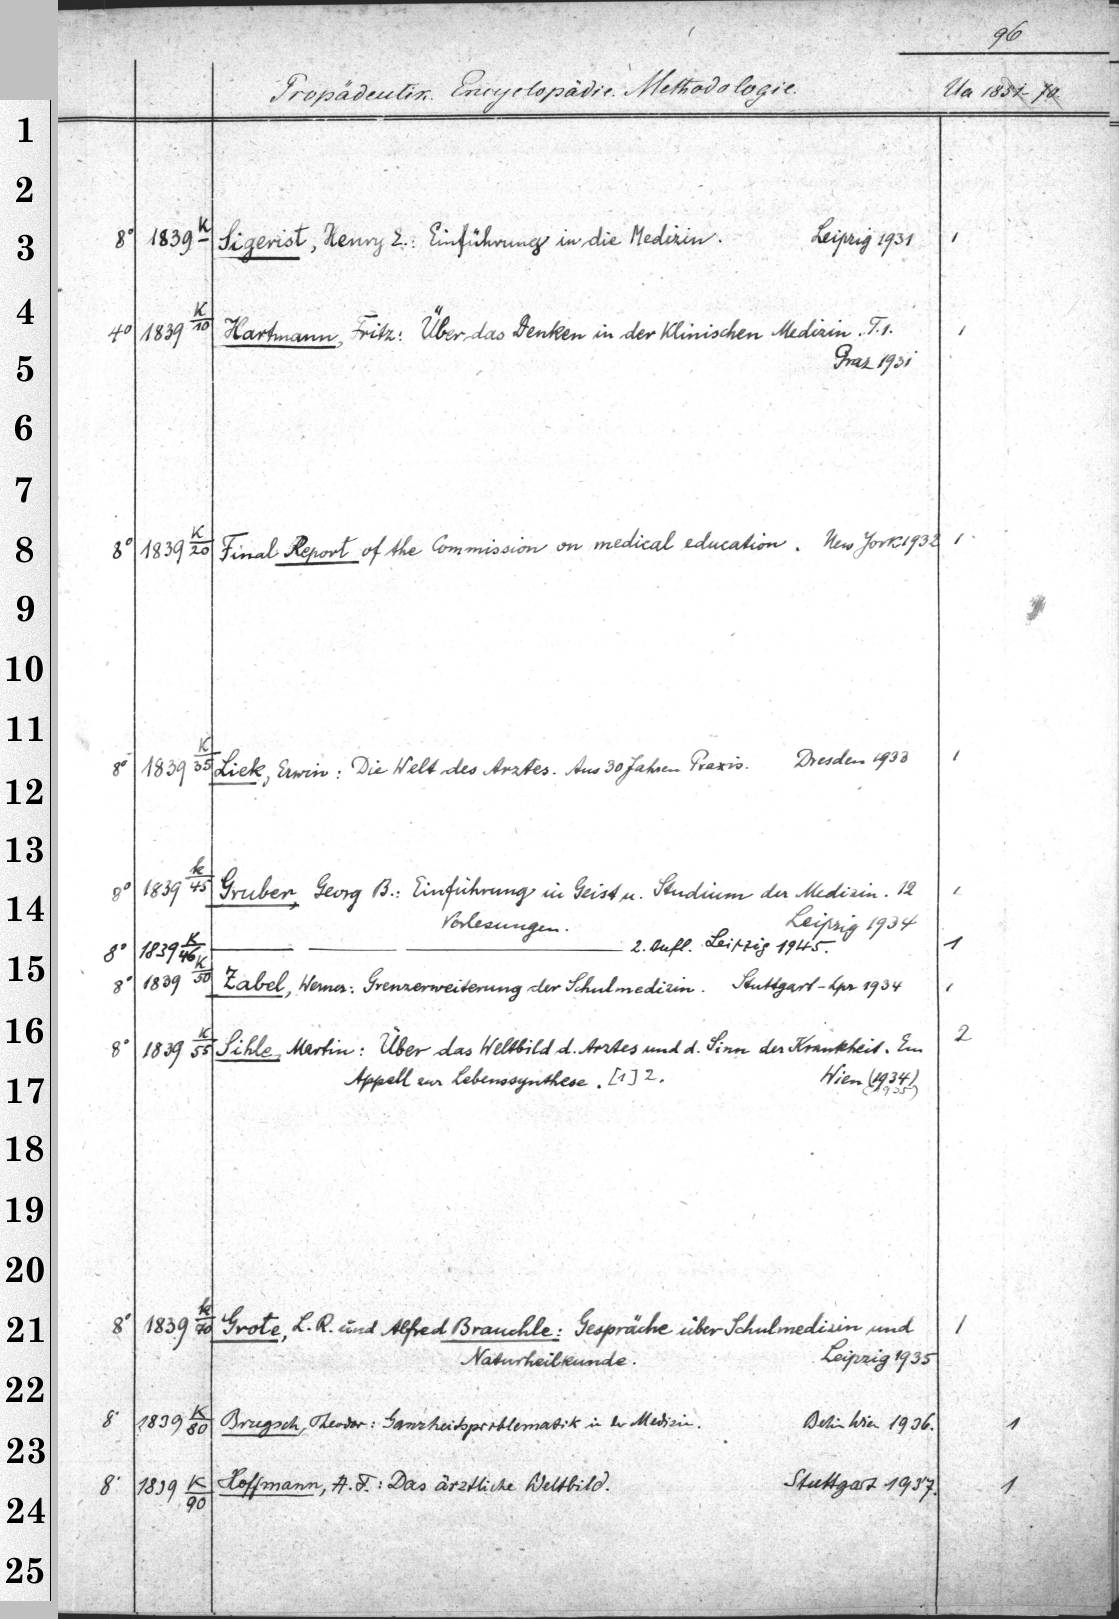 96
Propädeutik. Encyclopädie. Methodologie. Ua 1831-70.
1
2
3
4
5
6
7
8
9
10
11
12
13
14
15
16
17
18
19
20
21
22
23
24
25
8° 1839 K Sigerist, Henry E.: Einführung in die Medizin. Leipzig 1931 1
4° 1839 K/10 Hartmann, Fritz: Über das Denken in der Klinischen Medizin. T.1. 1
Graz 1931
8° 1839 K/20 Final Report of the Commission on medical education. New York 1932 1
8° 1839 K/35 Liek, Erwin: Die Welt des Arztes. Aus 30 Jahren Praxis. Dresden 1933 1
8° 1839 K/45 Gruber, Georg B.: Einführung in Geist u. Studium der Medizin. 12 1
Vorlesungen. Leipzig 1934
8° 1839 K/46 — — — 2. Aufl. Leipzig 1945. 1
8° 1839 K/50 Zabel, Werner: Grenzerweiterung der Schulmedizin. Stuttgart-Lpz 1934 1
8° 1839 K/55 Sihle, Martin: Über das Weltbild d. Arztes und d. Sinn der Krankheit. Ein 2
Appell zur Lebenssynthese. [1] 2. Wien (1934)
(1935)
8° 1839 K/70 Grote, L. R. und Alfred Brauchle: Gespräche über Schulmedizin und 1
Naturheilkunde. Leipzig 1935
8° 1839 K/80 Brugsch, Theodor: Ganzheitsproblematik in der Medizin. Berlin Wien 1936. 1
8° 1839 K/90 Hoffmann, A. F.: Das ärztliche Weltbild. Stuttgart 1937. 1